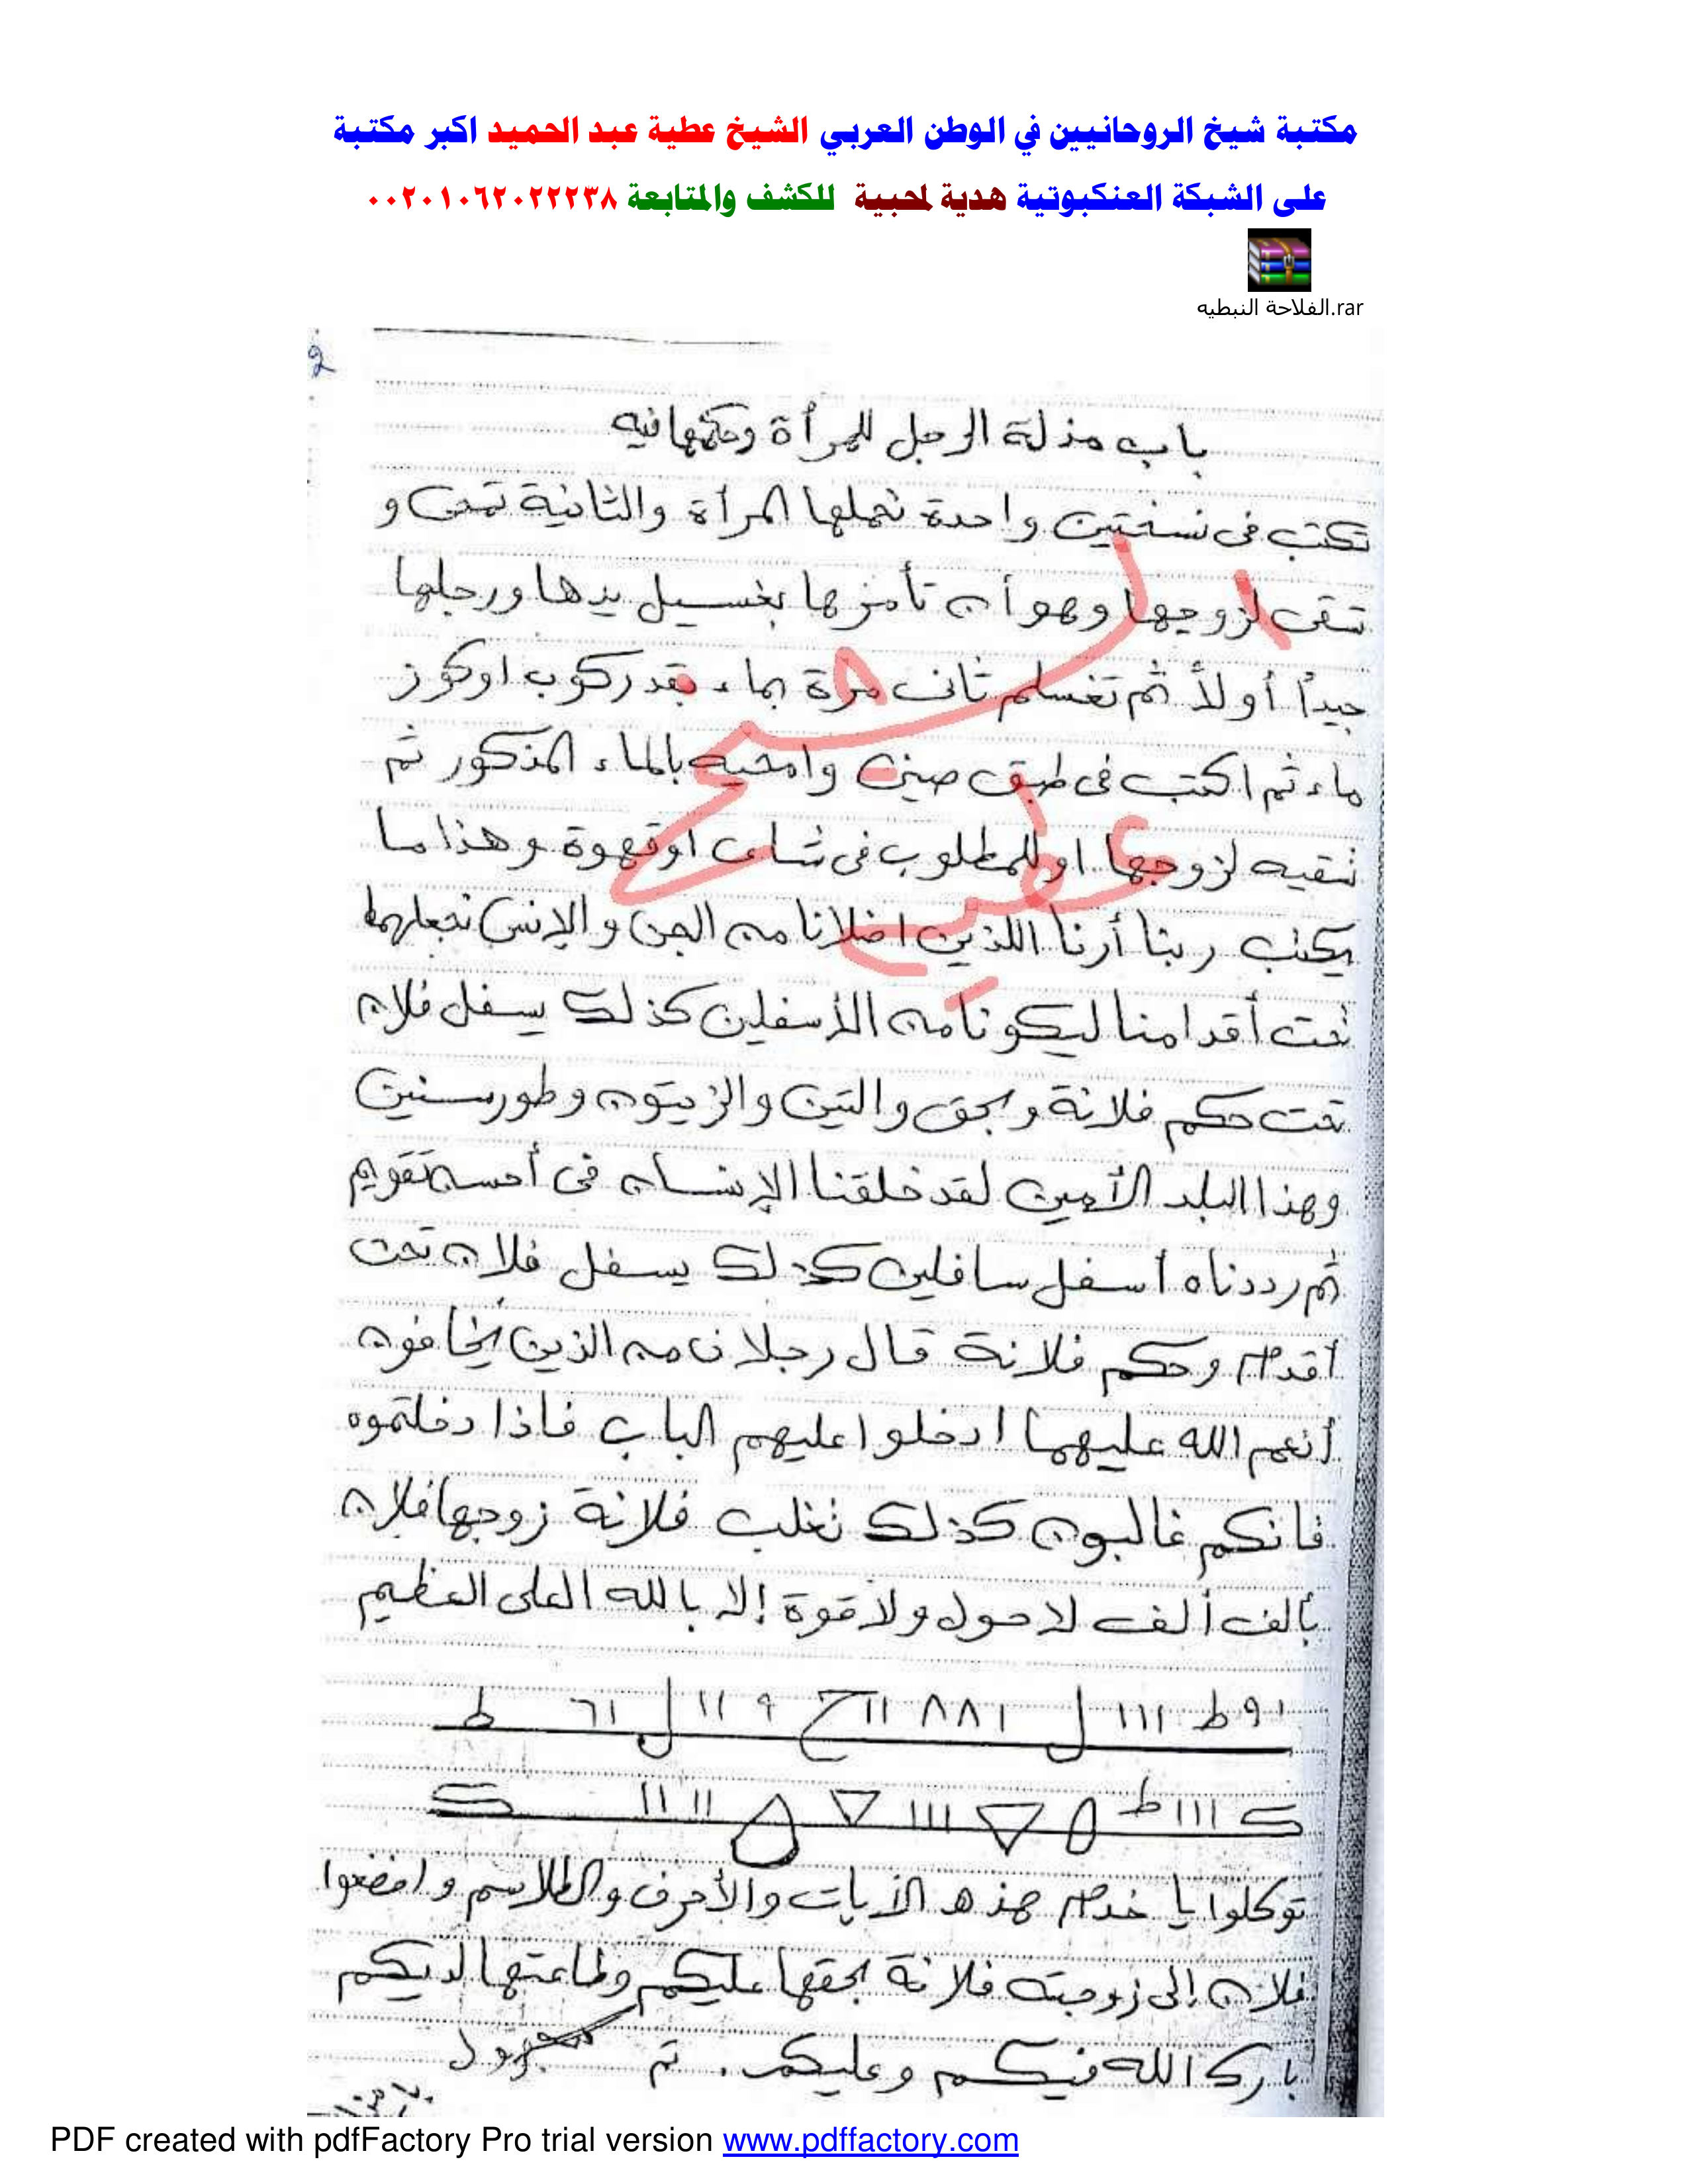 مكتبة شيخ الروحانيين في الوطن العربي الشيخ عطية عبد الحميد اكبر مكتبة
على الشبكة العنكبوتية هدية لمحبية للكشف والمتابعة ٠٠٢٠١٠٦٢٠٢٢٢٣٨
الفلاحة النبطيه.rar
2
باب مذلة الرجل للمرأة وحكمها فيه
تكتب فى نسختين واحدة تحملها المرأة والثانية تمحى و
تسقى لزوجها وهو أن تأمرها بغسيل يدها ورجلها
جيداً أولاً ثم تغسلهم ثانى مرة بماء بقدر كوب اوكوز
ماء ثم اكتب فى طبق صينى وامحيه بالماء المذكور ثم
تسقيه لزوجها او للمطلوب فى شاى اوقهوة وهذا ما
يكتب ربنا أرنا اللذين اضلانا من الجن والإنس نجعلهما
تحت أقدامنا ليكونا من الأسفلين كذلك يسفل فلان
تحت حكم فلانة وبحق والتين والزيتون وطورسنين
وهذا البلد الأمين لقد خلقنا الإنسان فى أحسن تقويم
ثم رددناه أسفل سافلين كذلك يسفل فلان تحت
أقدام وحكم فلانة قال رجلان من الذين يخافون
أنعم الله عليهما ادخلوا عليهم الباب فاذا دخلتموه
فانكم غالبون كذلك تغلب فلانة زوجها فلان
بألف ألف لاحول ولاقوة إلا بالله العلى العظيم
١٩ط ١١١ ل ١٨٨ ١١ح ٩ ١١ ل ٦١ ط
ك ١١١ ط ١١١ ١١ ١١ ك
توكلوا يا خدام هذه الأيات والأحرف والطلاسم واخضعوا
فلان إلى زوجته فلانة بحقها عليكم وطاعتها لديكم
بارك الله فيكم وعليكم. تم
الشيخ عطية
PDF created with pdfFactory Pro trial version www.pdffactory.com